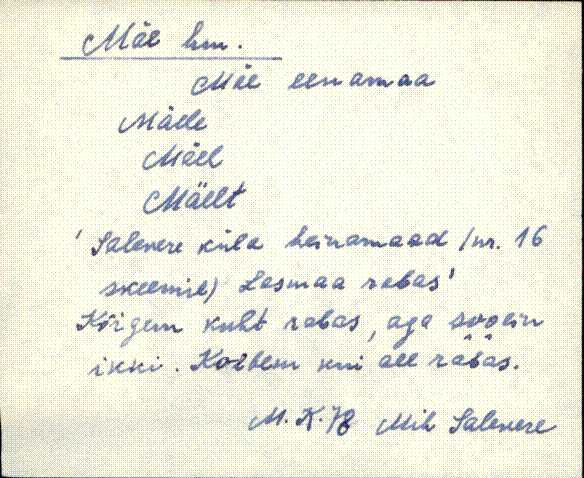 Mäe hm.
Mäe eenamaa
Mäele
Mäel
Mäelt
'Salevere küla heinamaad /nr. 16
skeemil) Lasmaa rabas'
Kõigem kuht rabas, aga soolin
ikki. Kolblem kui all rabas.
M. K. 78 Mih Salevere